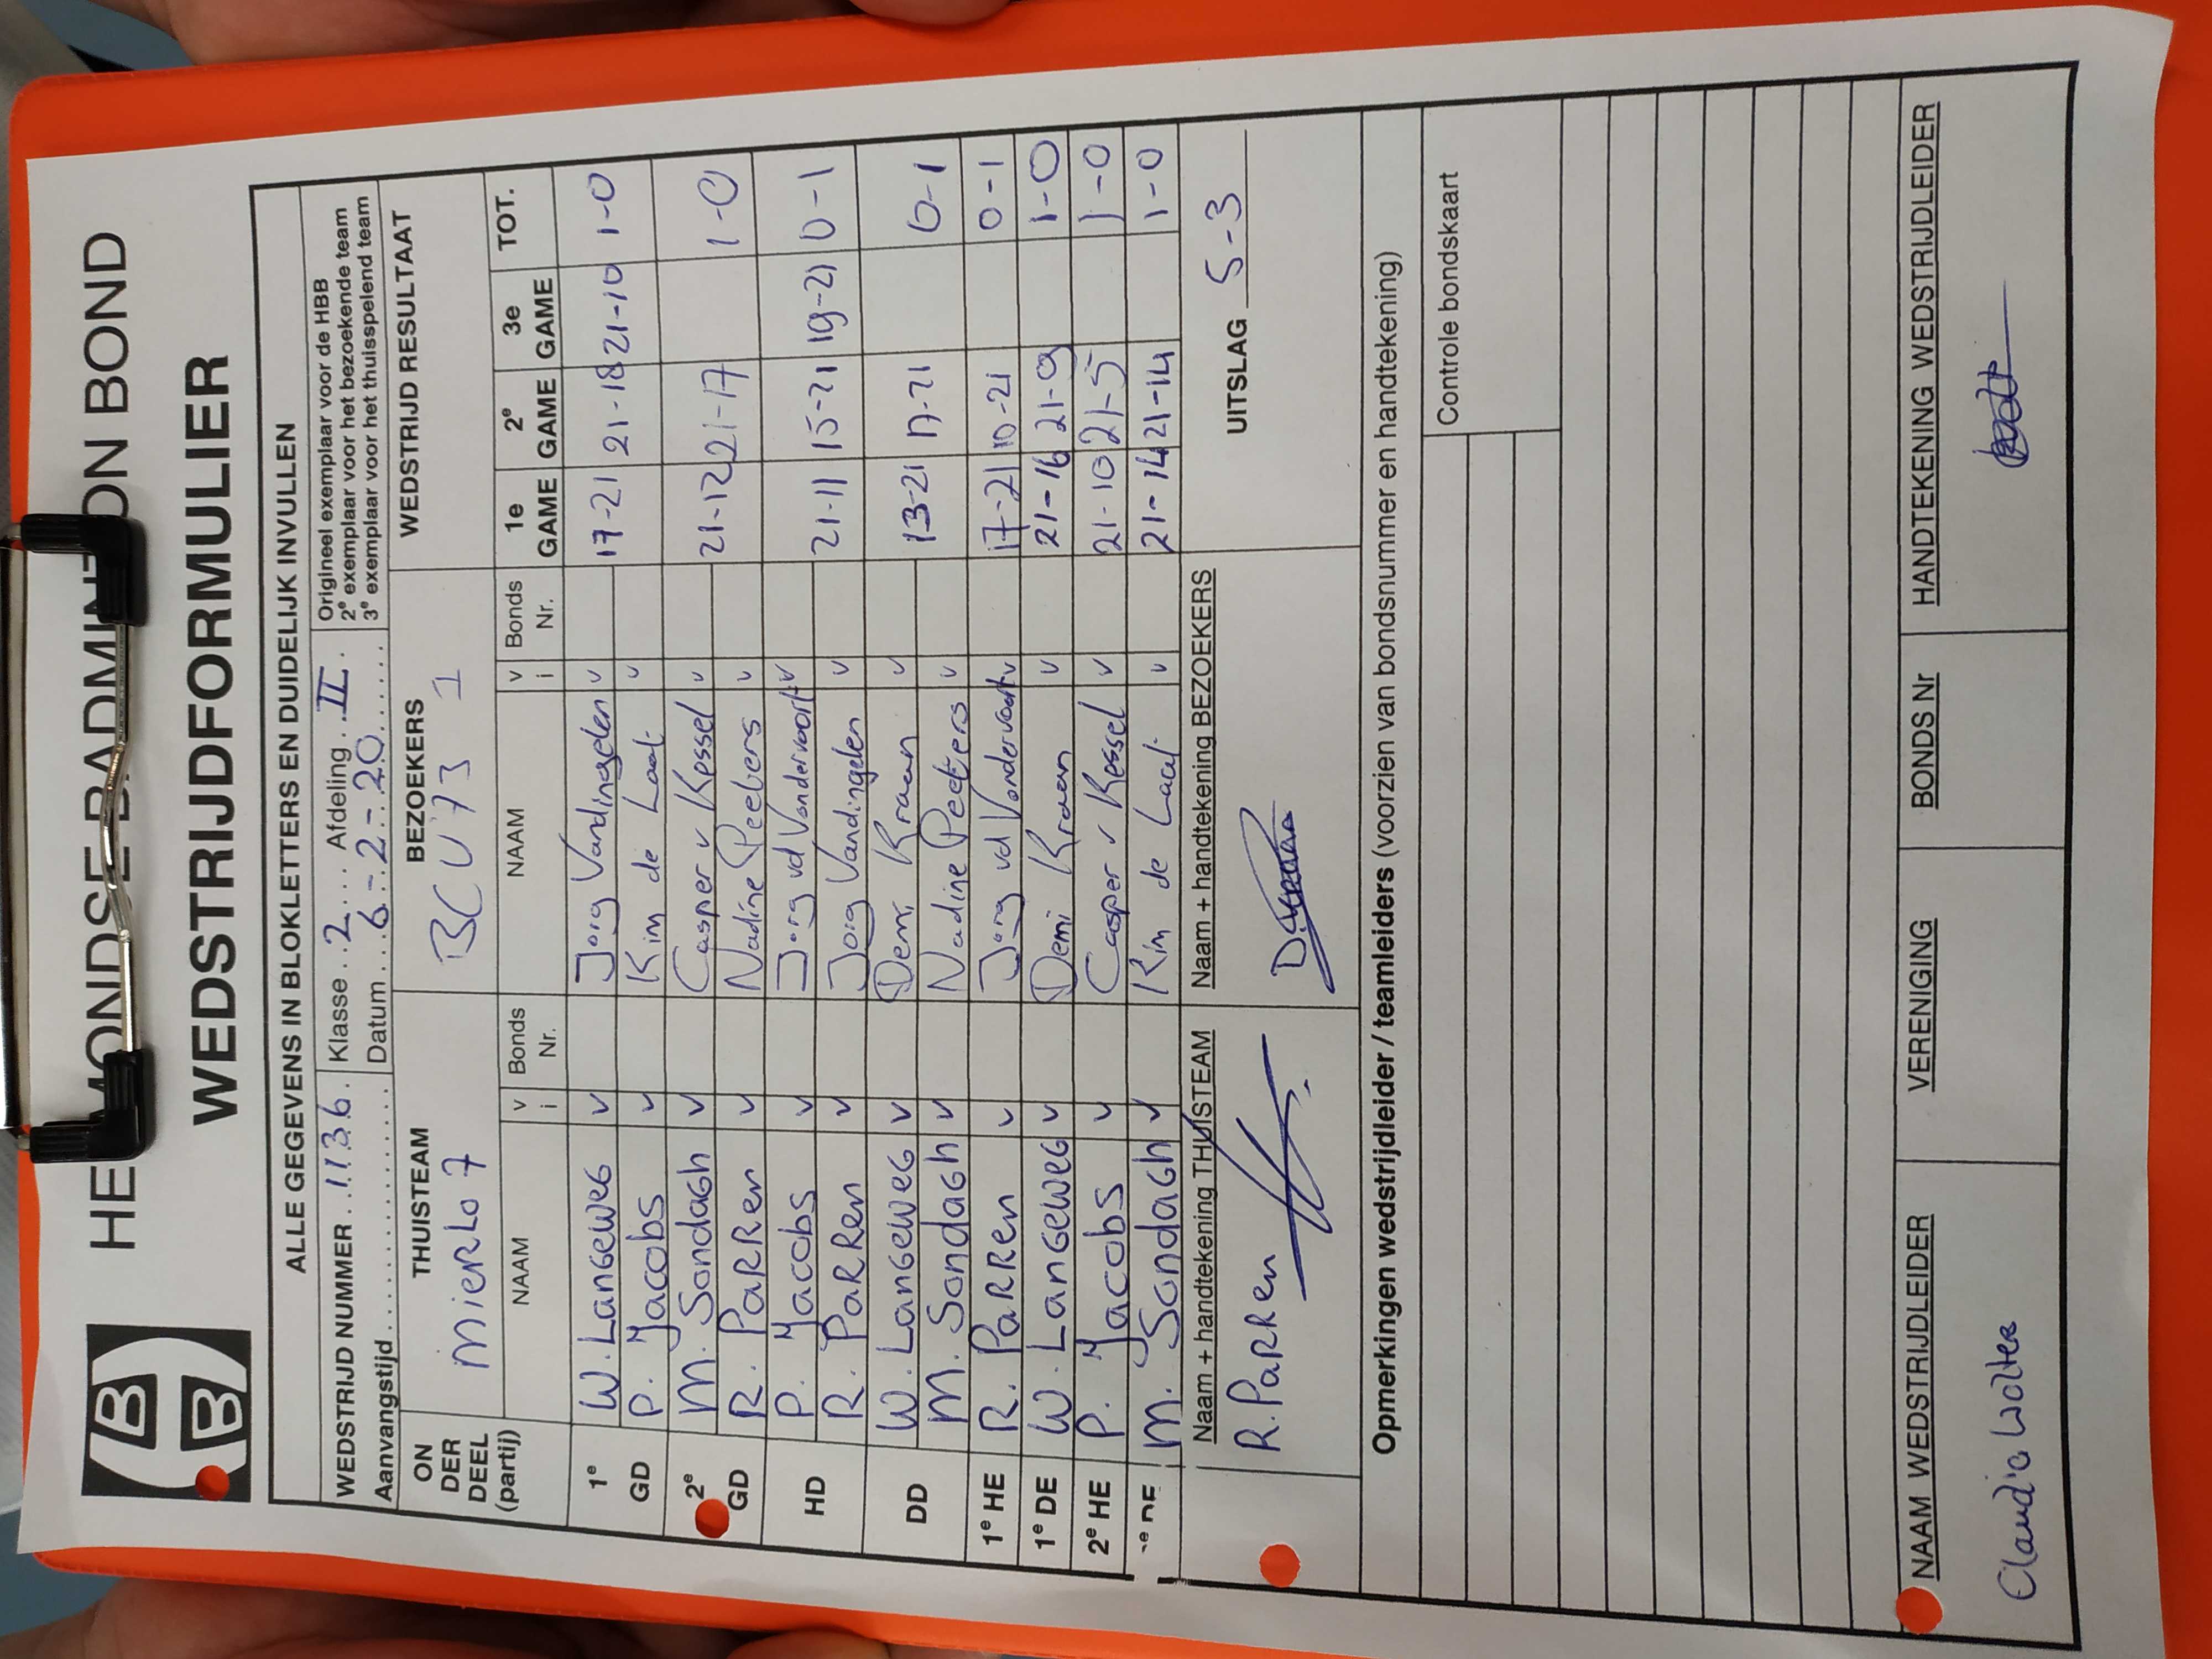 HE MONDSE BADMINTON BOND
WEDSTRIJDFORMULIER
B
B
ALLE GEGEVENS IN BLOKLETTERS EN DUIDELIJK INVULLEN
WEDSTRIJD NUMMER ..1136. Klasse ..2... Afdeling ..II. Origineel exemplaar voor de HBB
Aanvangstijd .......... Datum ...6-2-20...... 2e exemplaar voor het bezoekende team
3e exemplaar voor het thuisspelend team
ON DER DEEL (partij) THUISTEAM BEZOEKERS WEDSTRIJD RESULTAAT
MIERLO 7 BCV'73 1
NAAM v i Bonds Nr. NAAM v i Bonds Nr. 1e GAME 2e GAME 3e GAME TOT.
1e W. LANGEWEG v Jorg Vandingelen v 17-21 21-18 21-10 1-0
GD P. Jacobs v Kim de Laat v
2e M. Sondagh v Casper v Kessel v 21-12 21-17 1-0
GD R. Parren v Nadine Peeters v
HD P. Jacobs v Jorg vd Vondervoort v 21-11 15-21 19-21 0-1
R. Parren v Jorg Vandingelen v
DD W. Langeweg v Demi Kraan v 13-21 17-21 0-1
M. Sondagh v Nadine Peeters v
1e HE R. Parren v Jorg vd Vondervoort v 17-21 10-21 0-1
1e DE W. LANGEWEG v Demi Kraan v 21-16 21-9 1-0
2e HE P. Jacobs v Casper v Kessel v 21-10 21-5 1-0
DE M. Sondagh v Kim de Laat v 21-14 21-14 1-0
Naam + handtekening THUISTEAM Naam + handtekening BEZOEKERS
R. Parren
UITSLAG 5-3
Opmerkingen wedstrijdleider / teamleiders (voorzien van bondsnummer en handtekening)
Controle bondskaart
NAAM WEDSTRIJDLEIDER VERENIGING BONDS Nr HANDTEKENING WEDSTRIJDLEIDER
Claudia Wolter